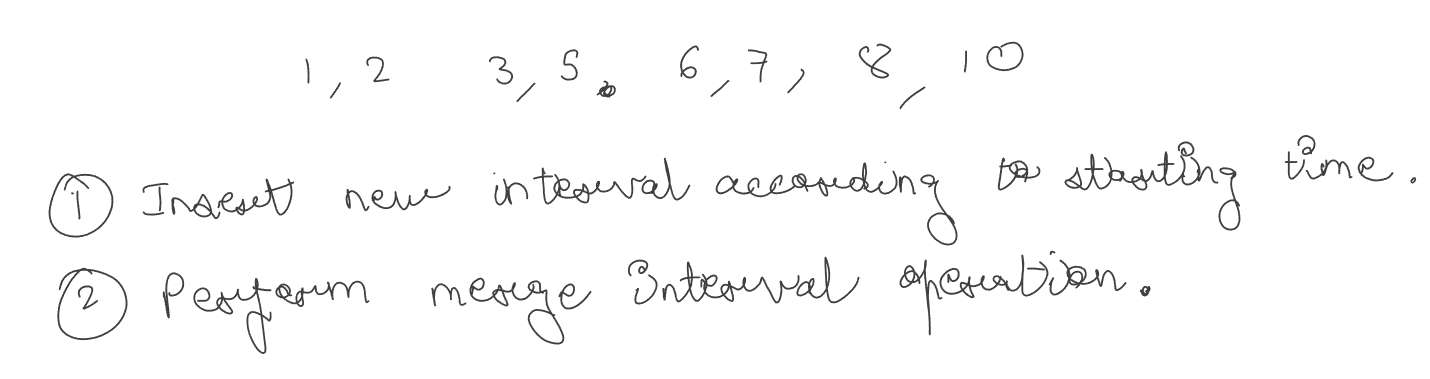 1, 2 3, 5. 6, 7, 8, 10
① Insert new interval according to starting time.
② Perform merge interval operation.